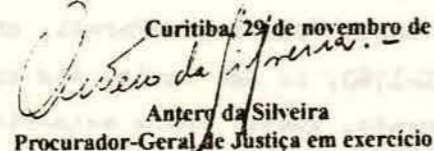 Curitiba, 29 de novembro de
Antero da Silveira
Antero da Silveira
Procurador-Geral de Justiça em exercício